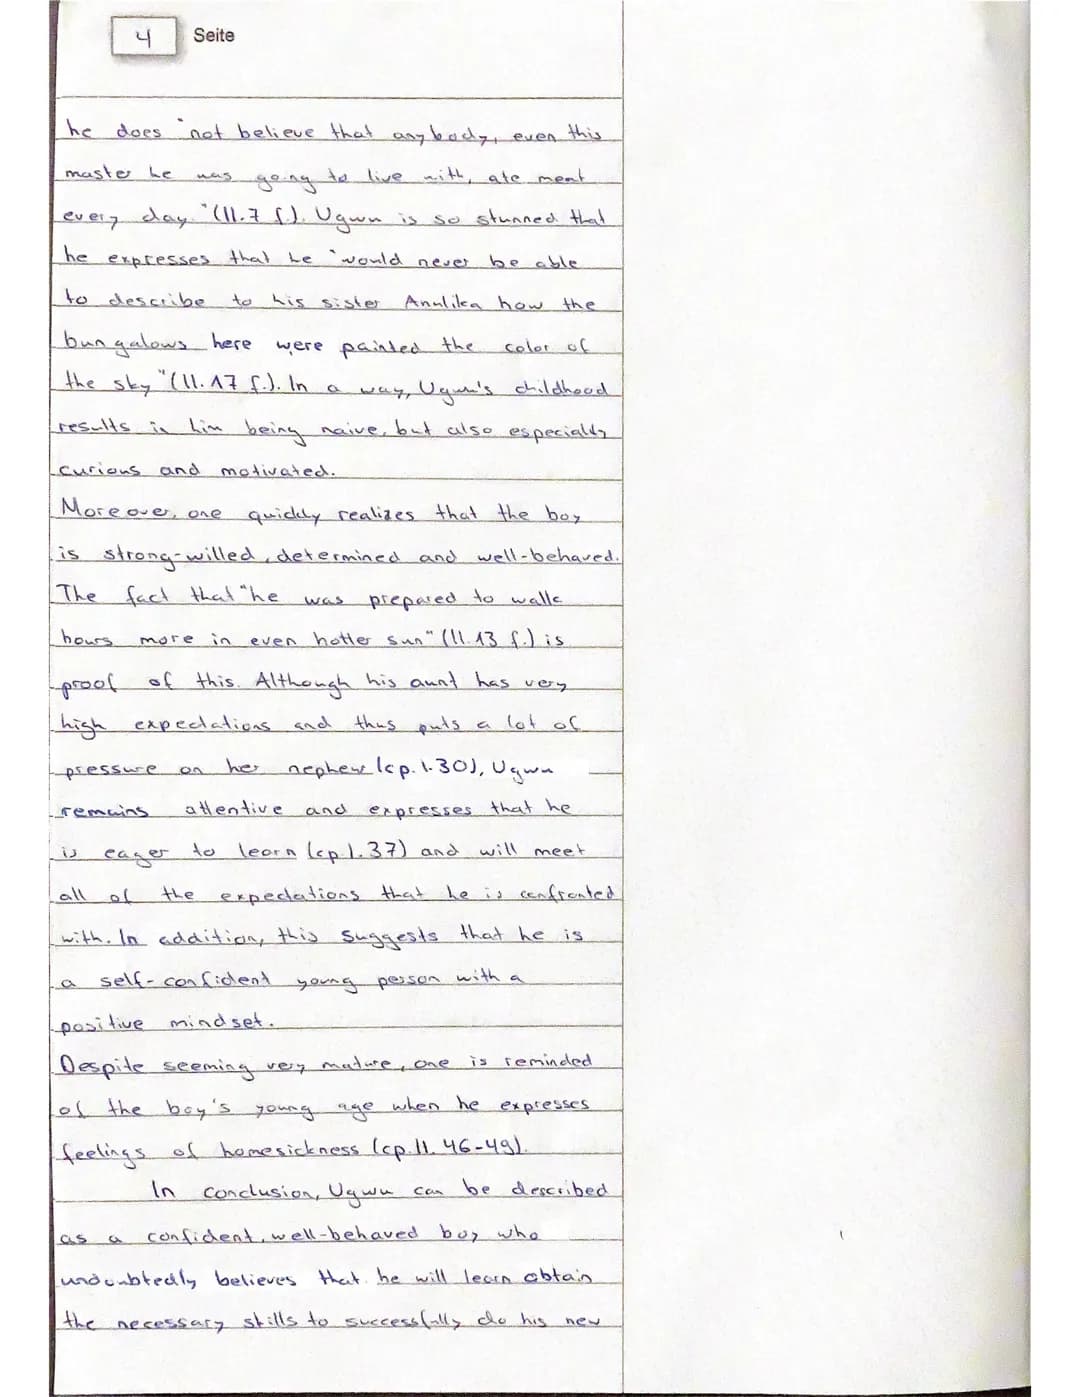 4 Seite
he does "not believe that anybody, even this
master he was going to live with, ate meat
every day."(ll.7 f.). Ugwu is so stunned that
he expresses that he "would never be able
to describe to his sister Anulika how the
bungalows here were painted the color of
the sky"(ll.17 f.). In a way, Ugwu's childhood
results in him being naive, but also especially
curious and motivated.
Moreover, one quickly realizes that the boy
is strong-willed, determined and well-behaved.
The fact that "he was prepared to walk
hours more in even hotter sun" (ll.13 f.) is
proof of this. Although his aunt has very
high expectations and thus puts a lot of
pressure on her nephew (cp. l.30), Ugwu
remains attentive and expresses that he
is eager to learn (cp. l.37) and will meet
all of the expectations that he is confronted
with. In addition, this suggests that he is
a self-confident young person with a
positive mindset.
Despite seeming very mature, one is reminded
of the boy's young age when he expresses
feelings of homesickness (cp. ll. 46-49).
In conclusion, Ugwu can be described
as a confident, well-behaved boy who
undoubtedly believes that he will learn obtain
the necessary skills to successfully do his new